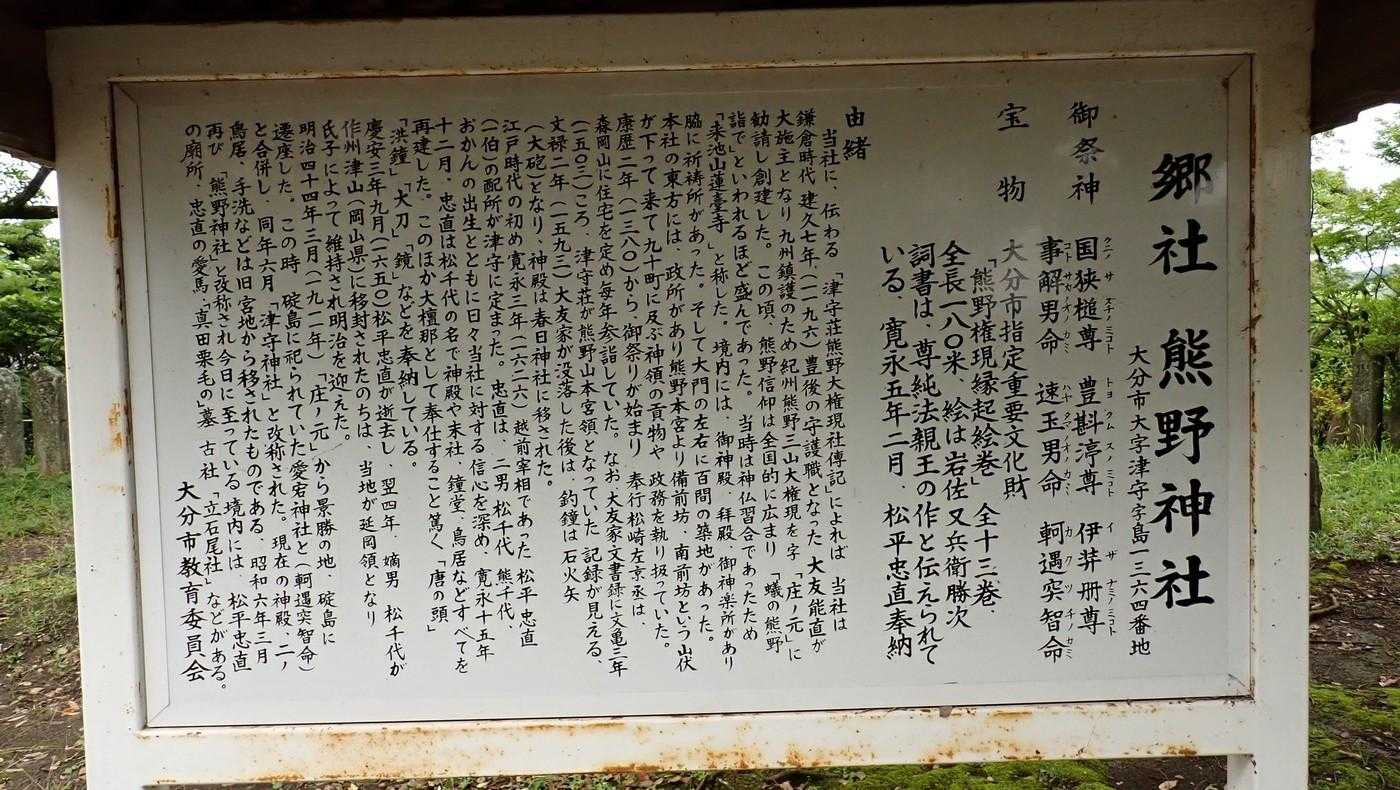 郷社 熊野神社
大分市大字津守字島一三六四番地
御祭神
国狭槌尊 豊斟渟尊 伊弉册尊
クニ サ ヅチノミコト トヨ クム ヌノミコト イ ザ ナミノミコト
事解男命 速玉男命 軻遇突智命
コトサカノオノカミ ハヤタマノオノカミ カ グ ツ チノカミ
宝物
大分市指定重要文化財
「熊野権現縁起絵巻」 全十三巻、
全長一八〇米、絵は岩佐又兵衛勝次
詞書は、尊純法親王の作と伝えられて
いる、寛永五年二月、松平忠直奉納
由緒
当社に、伝わる「津守荘熊野大権現社傳記」によれば、当社は
鎌倉時代 建久七年、(一一九六)豊後の守護職となった大友能直が
大施主となり九州鎮護のため紀州熊野三山大権現を字「庄ノ元」に
勧請し創建した。この頃、熊野信仰は全国的に広まり「蟻の熊野
詣で」といわれるほど盛んであった。当時は神仏習合であったため
「来池山蓮臺寺」と称した。境内には、御神殿、拝殿、御神楽所があり
脇に祈祷所があった。そして大門の左右に百間の築地があった。
本社の東方には、政所があり熊野本宮より備前坊、南前坊という山伏
が下って来て九十町に及ぶ神領の貢物や、政務を執り扱っていた。
康歴二年(一三八〇)から、御祭りが始まり 奉行松崎左京亟は
森岡山に住宅を定め毎年参詣していた。なお大友家文書録に文亀三年
(一五〇三)ころ、津守荘が熊野山本宮領となっていた記録が見える、
文禄二年(一五九三)大友家が没落した後は、釣鐘は石火矢
(大砲)となり、神殿は春日神社に移された。
江戸時代の初め寛永三年(一六二六)越前宰相であった 松平忠直
(一伯)の配所が津守に定まった。忠直は、二男 松千代、熊千代、
おかんの出生とともに日々当社に対する信心を深め、寛永十五年
十二月、忠直は松千代の名で神殿や末社、鐘堂、鳥居などすべてを
再建した。このほか大檀那として奉仕すること篤く「唐の頭」
「洪鐘」「大刀」「鏡」などを奉納している。
慶安三年九月(一六五〇)松平忠直が逝去し、翌四年、嫡男 松千代が
作州津山(岡山県)に移封されたのちは、当地が延岡領となり
氏子によって 維持され明治を迎えた。
明治四十四年三月(一九一二年)「庄ノ元」から景勝の地、碇島に
遷座した。この時 碇島に祀られていた愛宕神社と(軻遇突智命)
と合併し、同年六月「津守神社」と改称された。現在の神殿、二ノ
鳥居、手洗などは旧宮地から移されたものである、昭和六年三月
再び「熊野神社」と改称され今日に至っている、境内には、松平忠直
の廟所、忠直の愛馬「真田栗毛の」墓 古社「立石尾社」などがある。
大分市教育委員会